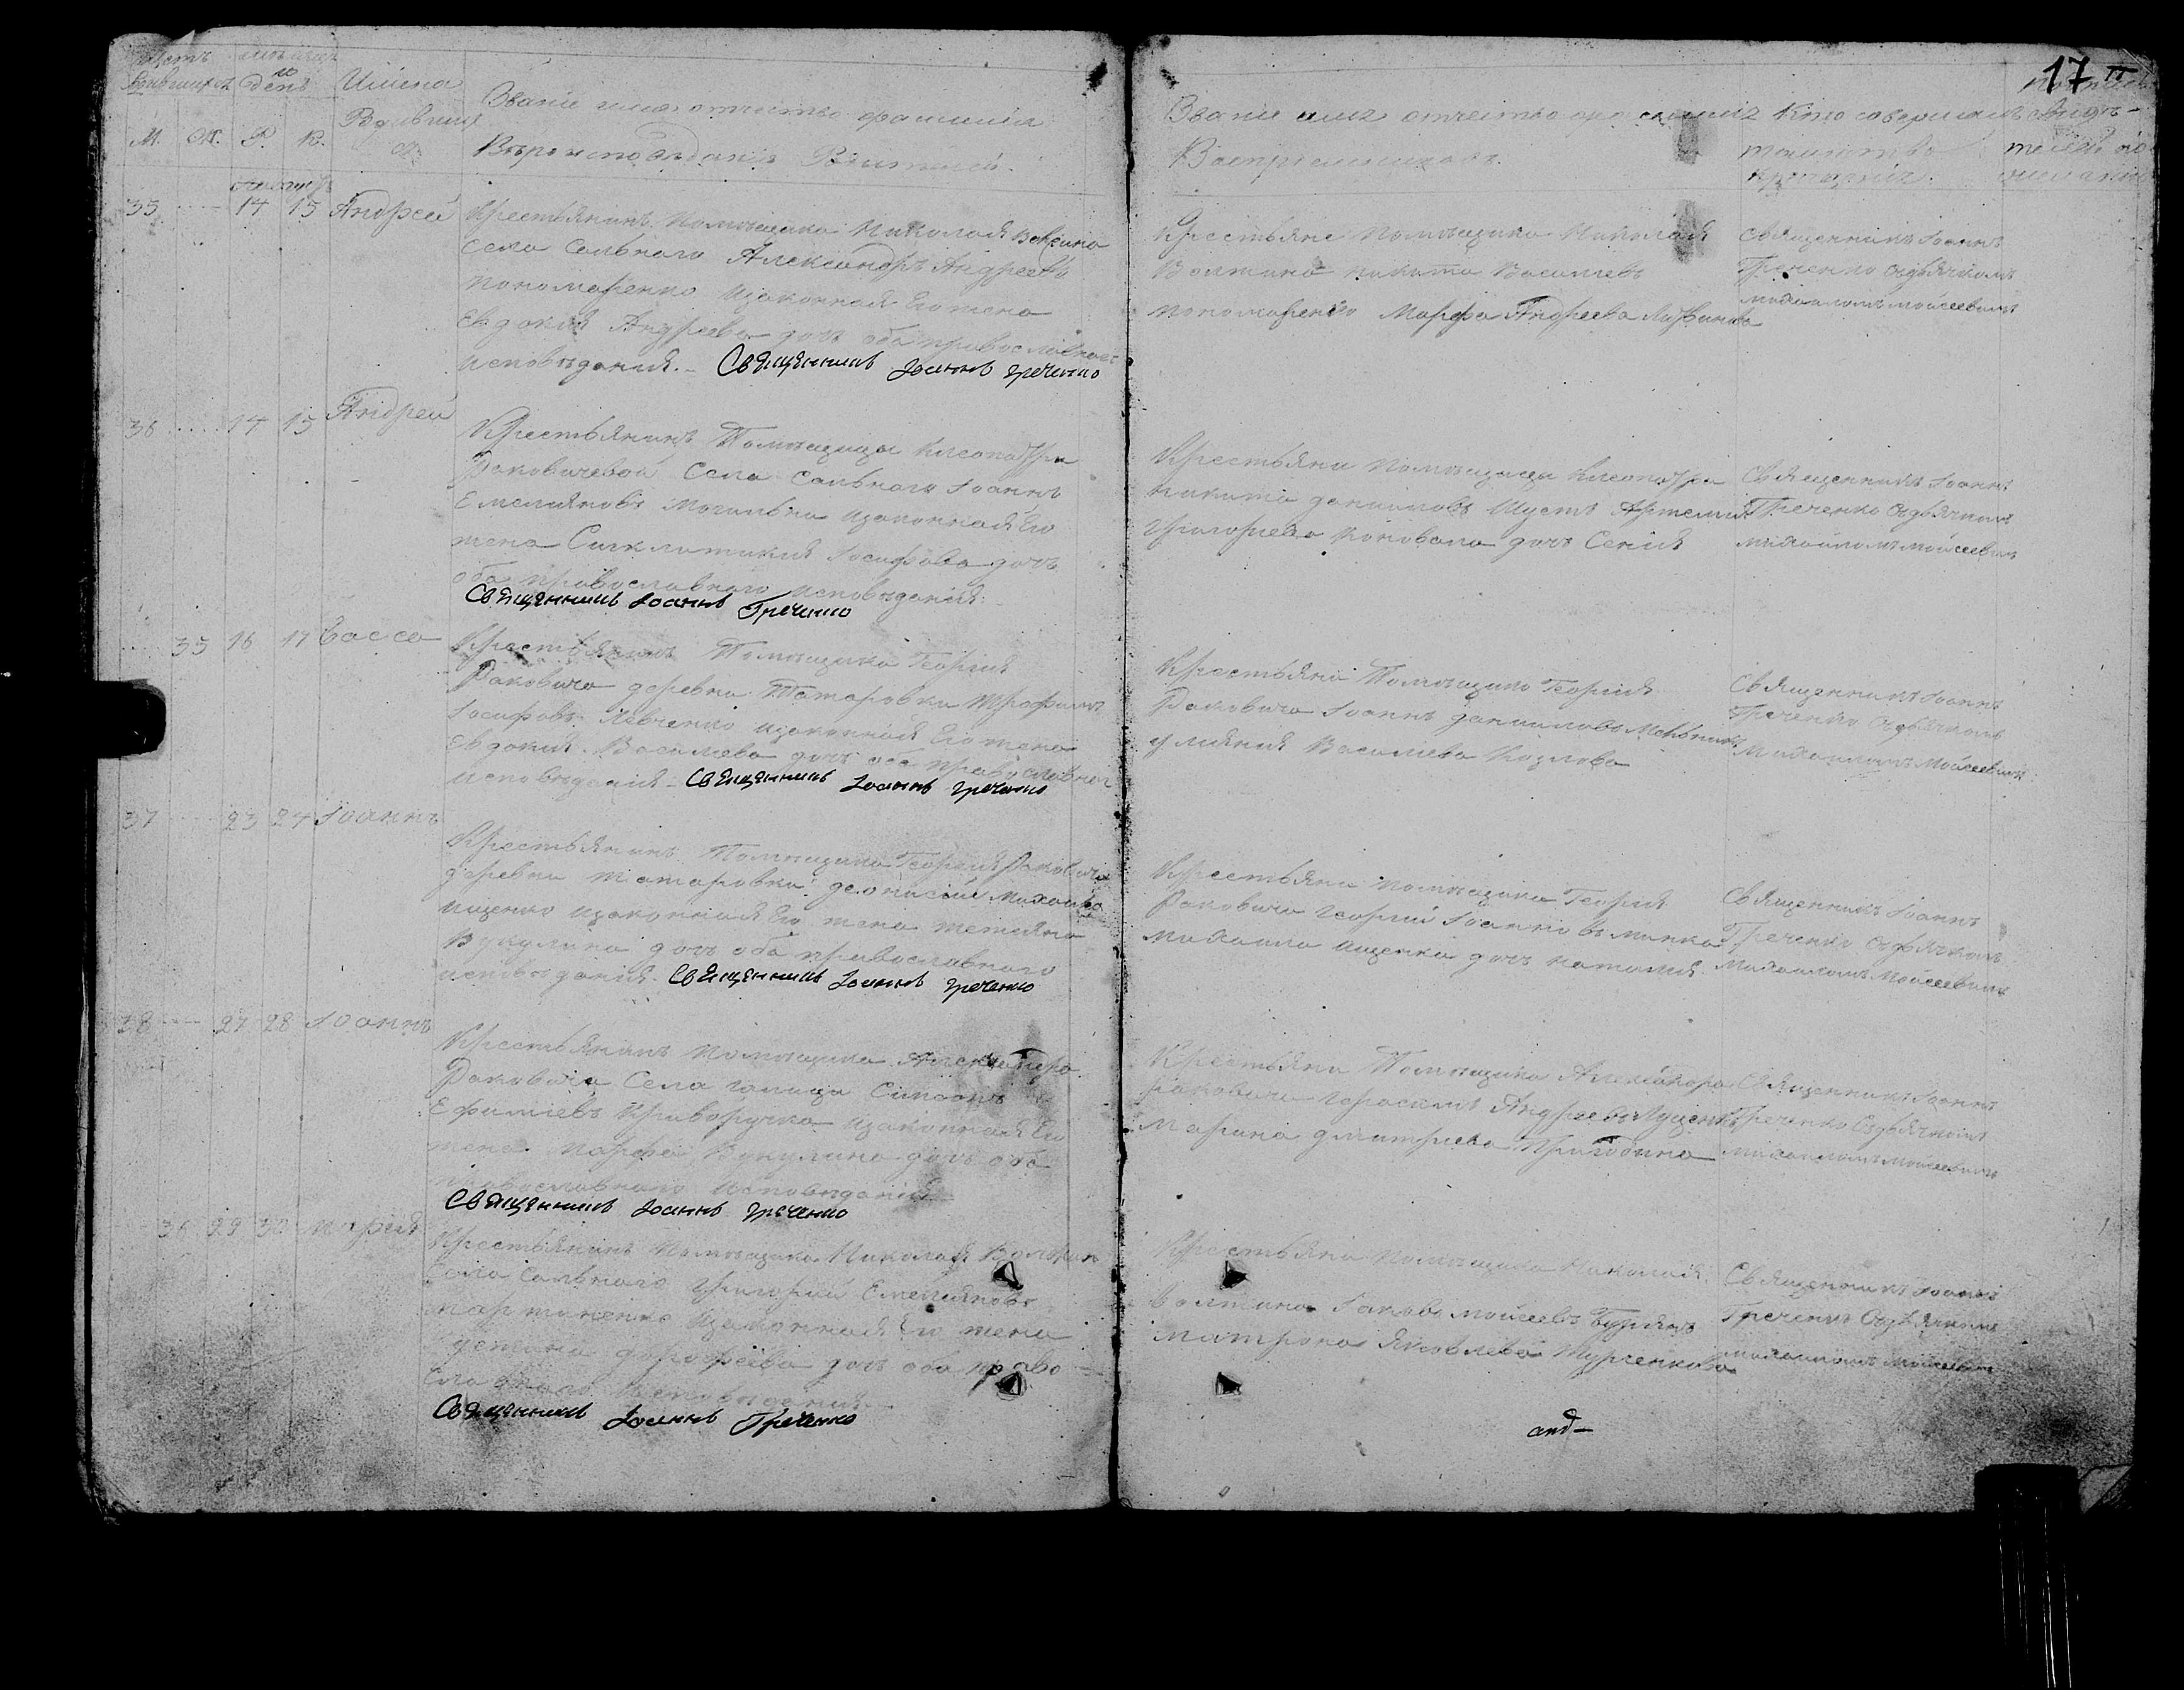 17
Счетъ родившихся
мѣсяцъ и день
Имена Родившихся
Званіе имя отчество фамилія
Вѣроисповѣданіе Родителей.
М. Ж. Р. К.
Званіе имя отчество фамилія
Воспріемниковъ.
Кто совершалъ
таинство
крещенія.
Августъ
35 14 15 Андрей
Крестьянинъ Помѣщика Николая
села Сальнаго Александръ Андреевъ
Пономаренко и законная Его жена
Евдокія Андреева дочь оба православнаго
исповѣданія. – Священникъ Іоаннъ Греченко
Крестьяне Помѣщика Николая
Волжина Никита Васильевъ
Пономаренко Марфа Андреева
Священникъ Іоаннъ
Греченко съ дьячкомъ
Михаиломъ Мойсеевымъ
36 14 15 Андрей
Крестьянинъ Помѣщицы Клеопатры
Раковичевой Села Сальнаго Іоаннъ
Емелияновъ Могильна и законная Его
жена Сигклитикия Іосифова дочь
оба православнаго исповѣданія.
Священникъ Іоаннъ Греченко
Крестьяни Помѣщицы Клеопатры
Никита Данииловъ Шустъ Артемия
Григориева Коновала дочь Сения
Священникъ Іоаннъ
Греченко съ дьячкомъ
Михаиломъ Мойсеевымъ
35 16 17 Васса
Крестьянинъ Помѣщика Георгия
Раковича деревни Татаровки Трофимъ
Іосифовъ Левченко и законная Его жена
Евдокия Васильева дочь оба православнаго
исповѣданія – Священникъ Іоаннъ Греченко
Крестьяни Помѣщика Георгия
Раковича Іоаннъ Данииловъ Мельникъ
Улияния Василиева Козлова
Священникъ Іоаннъ
Греченко съ дьячкомъ
Михаиломъ Мойсеевымъ
37 23 24 Іоаннъ
Крестьянинъ Помѣщика Георгия Раковича
деревни Татаровки Деонисий Михайловъ
Ищенко и законная Его жена Тетияна
Вукулина дочь оба православнаго
исповѣданія. Священникъ Іоаннъ Греченко
Крестьяни Помѣщика Георгия
Раковича Георгий Іоанновъ Минка
Михаила Ищенка дочь Наталия
Священникъ Іоаннъ
Греченко съ дьячкомъ
Михаиломъ Мойсеевымъ
38 27 28 Іоаннъ
Крестьянинъ Помѣщика Александра
Раковича Села Галицы Симеонъ
Ефимиевъ Криворучка и законная Его
жена Марфа Вукулина дочь оба
православнаго исповѣданія
Священникъ Іоаннъ Греченко
Крестьяни Помѣщика Александра
Раковича Герасимъ Андреевъ Луценко
Марина Дмитриева Пригодина
Священникъ Іоаннъ
Греченко съ дьячкомъ
Михаиломъ Мойсеевымъ
36 29 30 Мария
Крестьянинъ Помѣщика Николая Волжина
Села Сальнаго Григорий Емелияновъ
Мартиненко и законная Его жена
Дорофеева дочь оба право-
славнаго исповѣданія
Священникъ Іоаннъ Греченко
Крестьяни Помѣщика Николая
Волжина Іаковъ Мойсеевъ Бурякъ
Матрона Яковлева
Священникъ Іоаннъ
Греченко съ дьячкомъ
Михаиломъ Мойсеевымъ